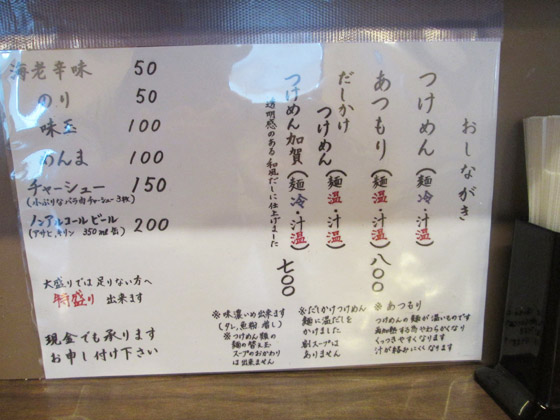 おしながき
つけめん(麺冷・汁温)
あつもり(麺温・汁温)八〇〇
だしかけ
つけめん(麺温・汁温)
つけめん加賀(麺冷・汁温)七〇〇
透明感のある和風だしに仕上げました
※あつもり
つけめんの麺が温いものです
再加熱する為やわらかくなり
くっつきやすくなります
汁が絡みにくくなります
※だしかけつけめん
麺に温だしを
かけました
割スープは
ありません
※味濃いめ出来ます
(タレ,魚粉増し)
※つけめん類の
麺の替え玉
スープのおかわり
は出来ません
海老辛味 50
のり 50
味玉 100
めんま 100
チャーシュー 150
(小ぶりなバラ肉チャーシュー3枚)
ノンアルコールビール 200
(アサヒ,キリン 350ml缶)
大盛りでは足りない方へ
特盛り出来ます
現金でも承ります
お申し付け下さい